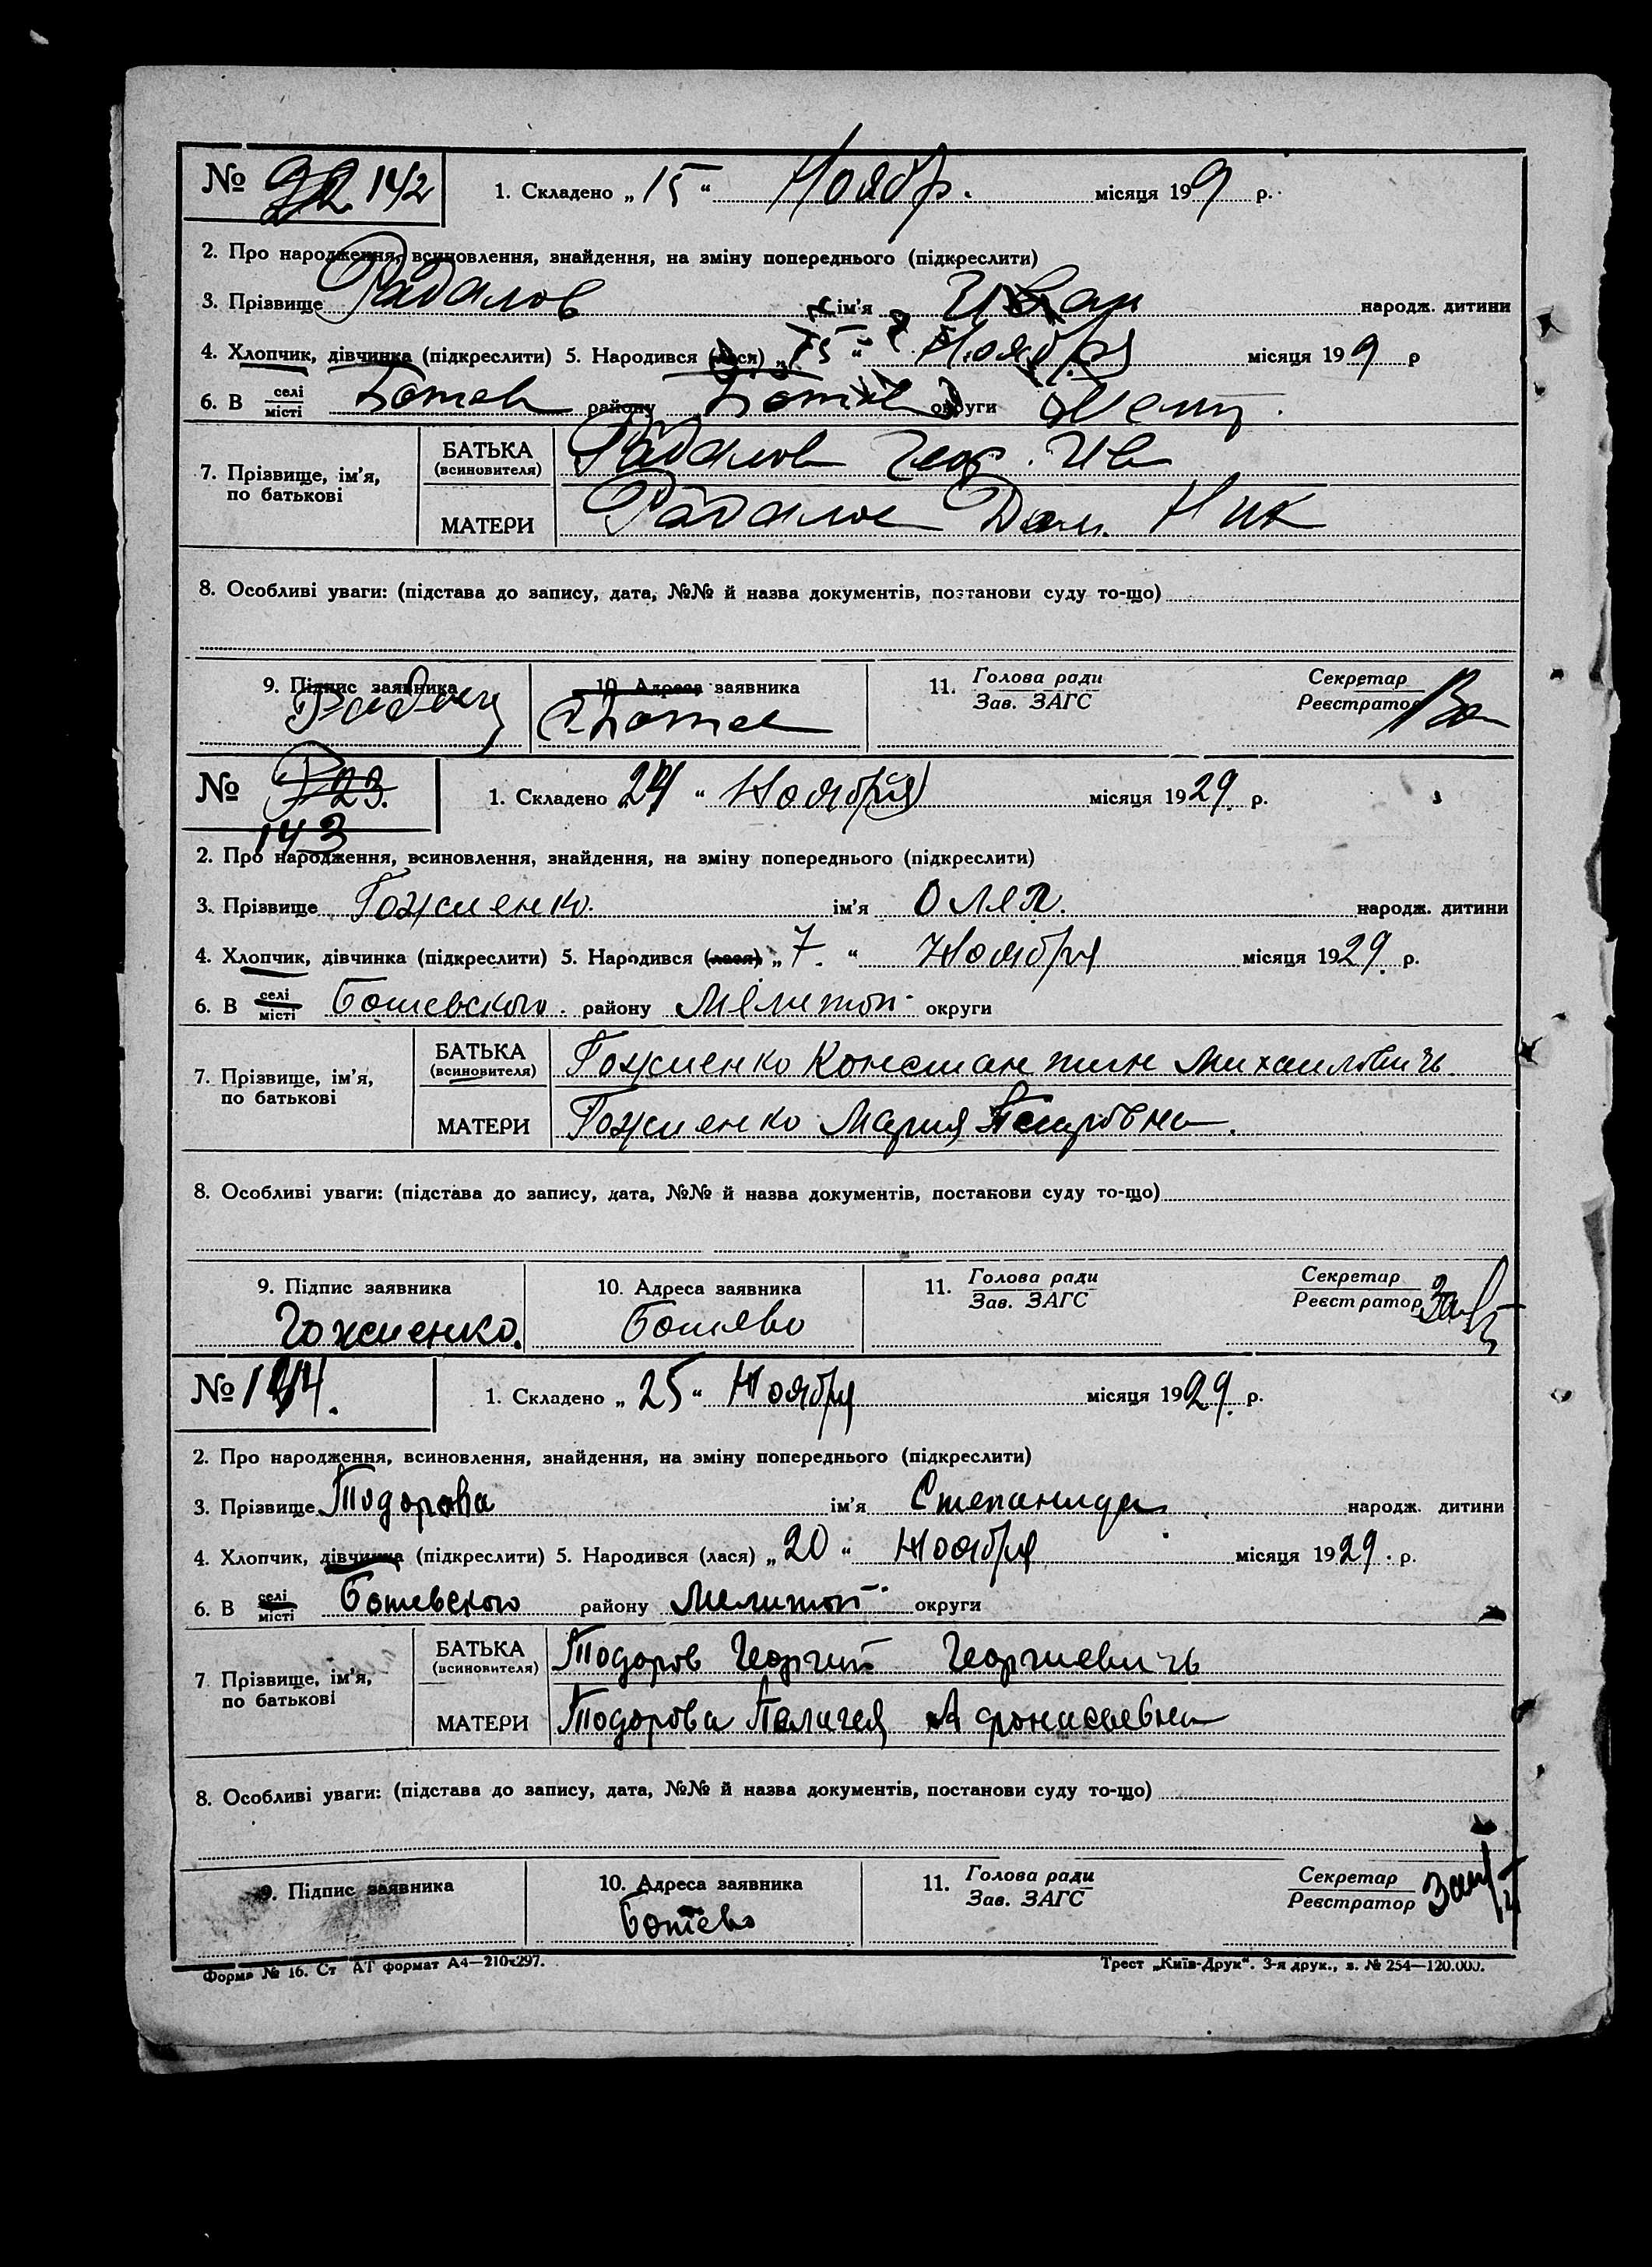 № 22 142 1. Складено „15“ Ноябр. місяця 199 р.
2. Про народження, всиновлення, знайдення, на зміну попереднього (підкреслити)
3. Прізвище Радалов ім'я Иван народж. дитини
4. Хлопчик, дівчинка (підкреслити) 5. Народився (лася) „15“ Ноября місяця 199 р
6. В селі місті Ботев району Ботев округи
7. Прізвище, ім'я, по батькові БАТЬКА (всиновителя) Радалов Геор. Ив
МАТЕРИ Радалов Дом. Ник
8. Особливі уваги: (підстава до запису, дата, №№ й назва документів, постанови суду то-що)
9. Підпис заявника 10. Адреса заявника 11. Голова ради Зав. ЗАГС Секретар Реєстратор
Ботев
№ 23. 1. Складено 24 “ Ноября місяця 1929. р.
143
2. Про народження, всиновлення, знайдення, на зміну попереднього (підкреслити)
3. Прізвище Гожиенко. ім'я народж. дитини
4. Хлопчик, дівчинка (підкреслити) 5. Народився (лася) „7.“ Ноября місяця 1929. р.
6. В селі місті Ботевского. району Мелитоп. округи
7. Прізвище, ім'я, по батькові БАТЬКА (всиновителя) Гожиенко Константин Михаиловичь
МАТЕРИ Гожиенко Мария
8. Особливі уваги: (підстава до запису, дата, №№ й назва документів, постанови суду то-що)
9. Підпис заявника 10. Адреса заявника 11. Голова ради Зав. ЗАГС Секретар Реєстратор
Гожиенко. Ботево
№ 144. 1. Складено „25“ Ноября місяця 1929. р.
2. Про народження, всиновлення, знайдення, на зміну попереднього (підкреслити)
3. Прізвище Тодорова ім'я Степанида народж. дитини
4. Хлопчик, дівчинка (підкреслити) 5. Народився (лася) „20“ Ноября місяця 1929. р.
6. В селі місті Ботевского району Мелитоп. округи
7 Прізвище, ім'я, по батькові БАТЬКА (всиновителя) Тодоров Георгий Георгиевичь
МАТЕРИ Тодорова Палигея Афонасьевна
8. Особливі уваги: (підстава до запису, дата, №№ й назва документів, постанови суду то-що)
9. Підпис заявника 10. Адреса заявника 11. Голова ради Зав. ЗАГС Секретар Реєстратор
Ботево
Форма № 16. Ст АТ формат А4—210×297. Трест „Київ-Друк“. 3-я друк., з. № 254—120.000.